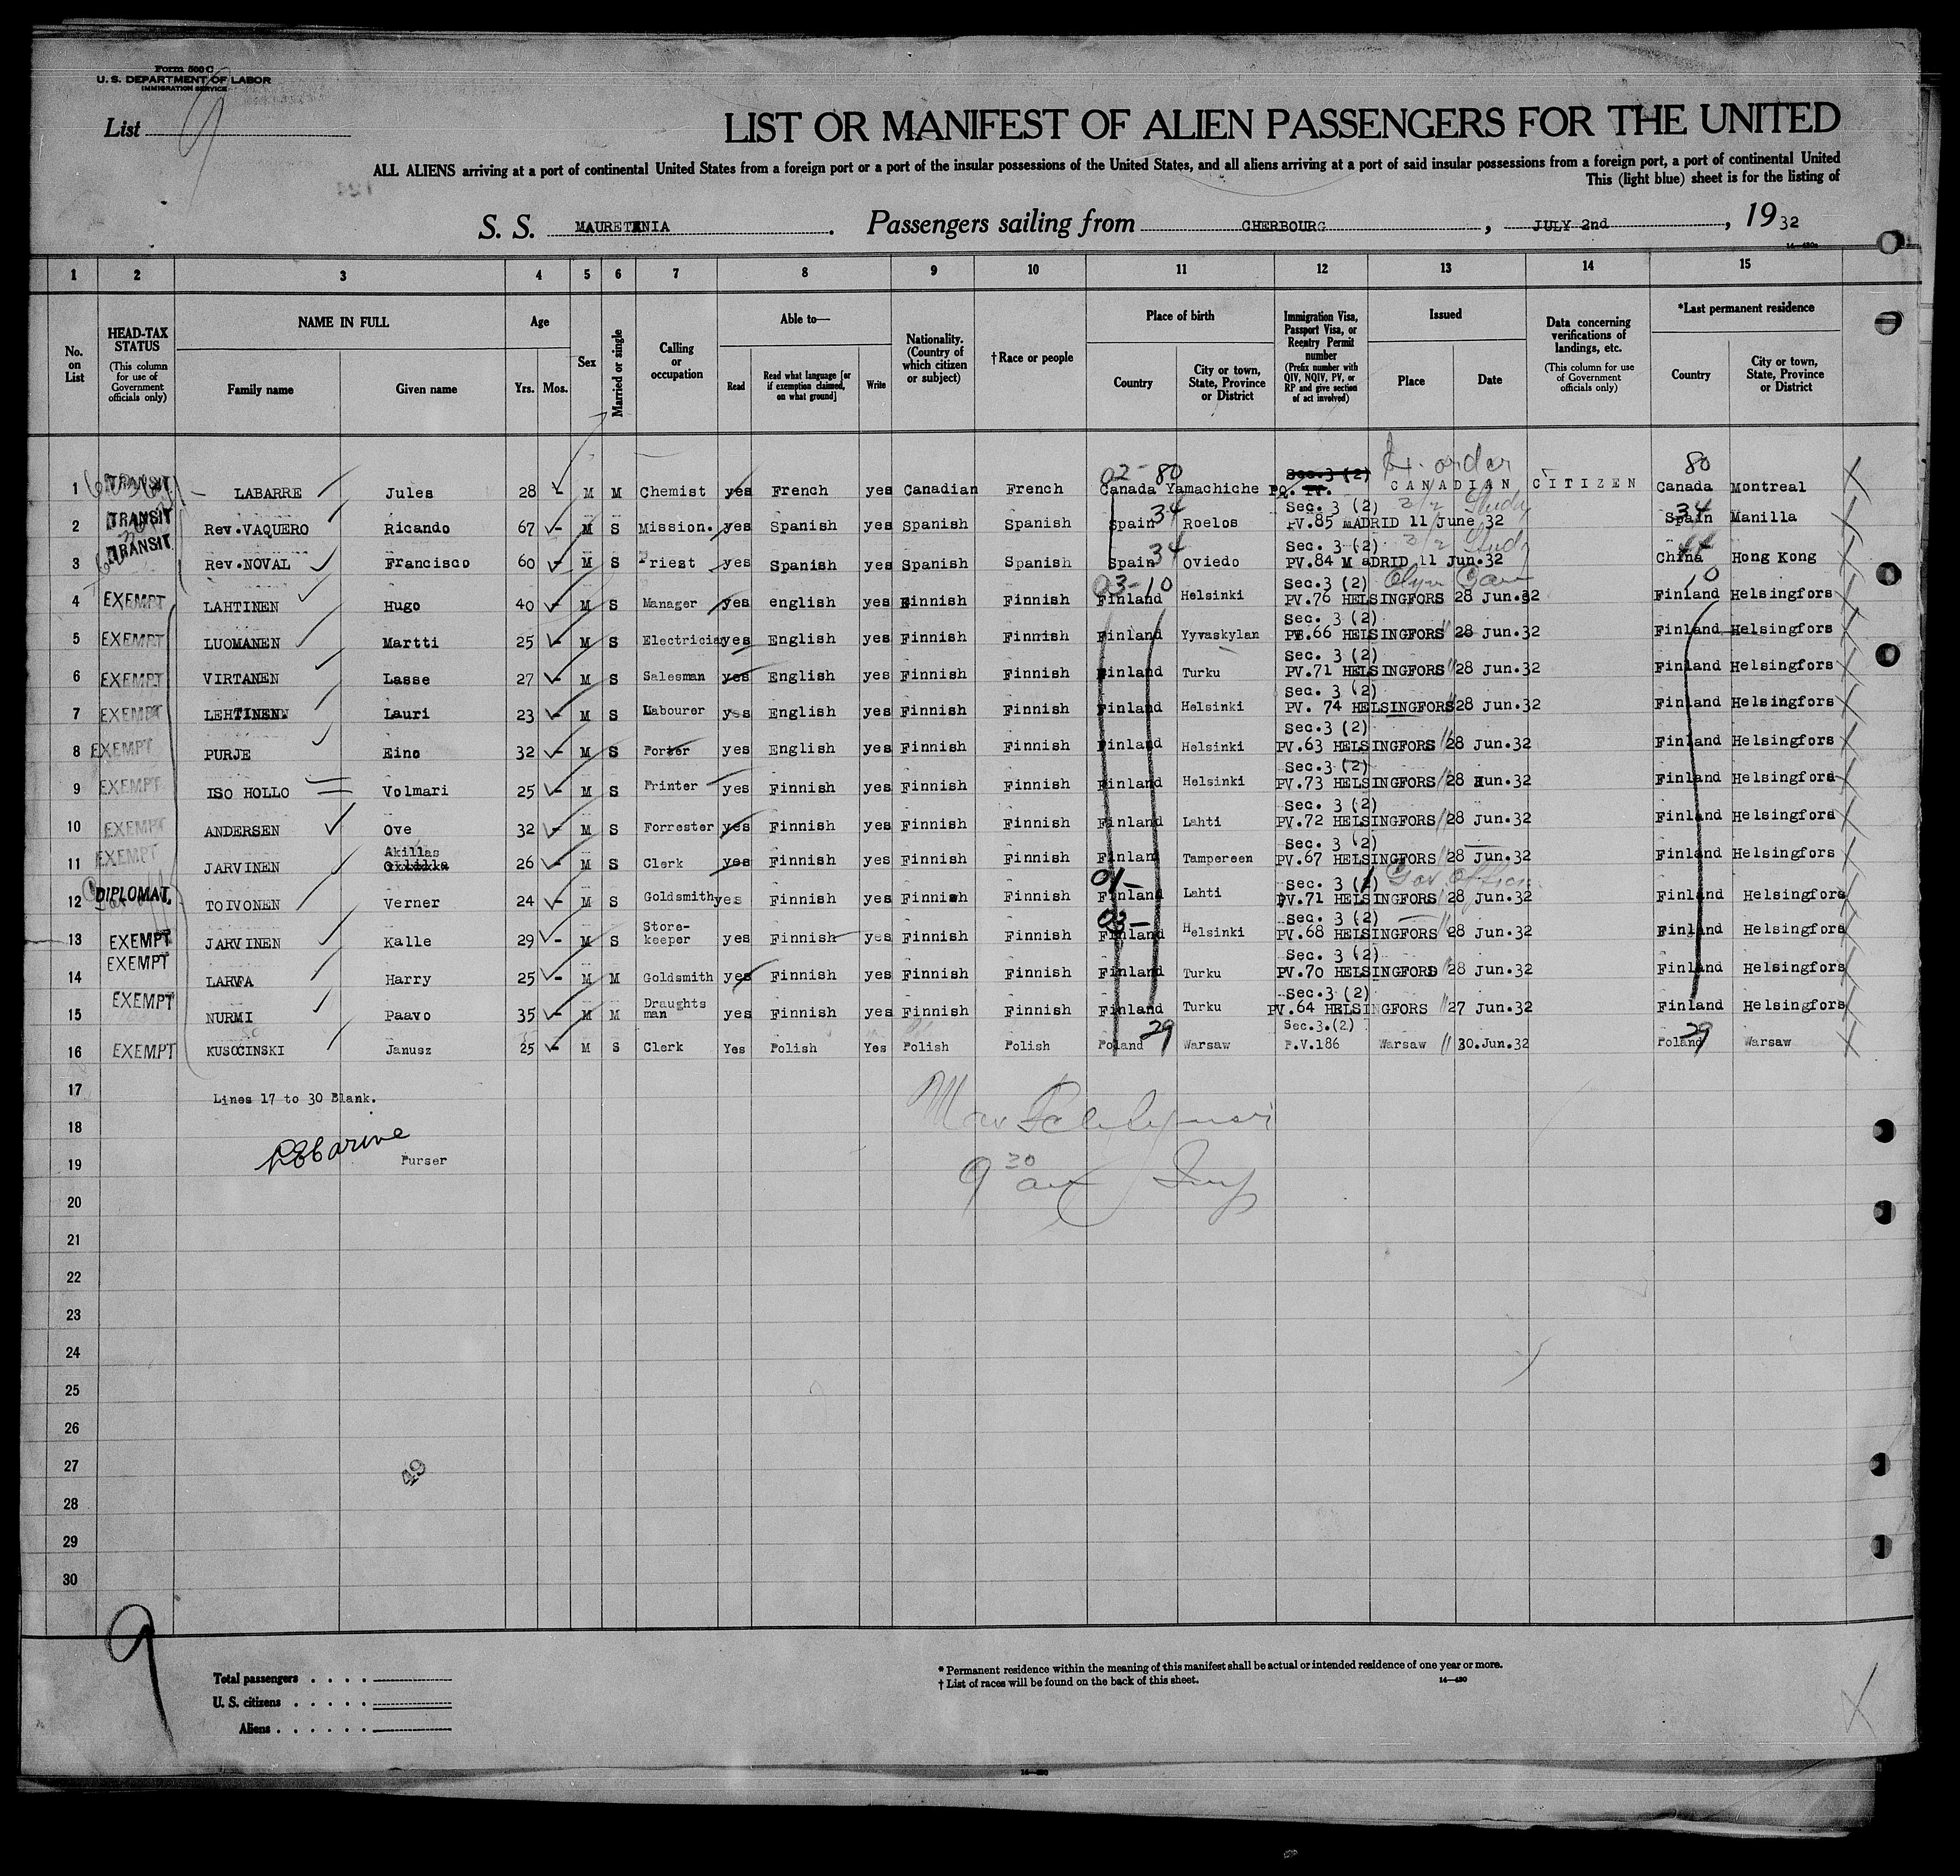 Form 500 C
U. S. DEPARTMENT OF LABOR
IMMIGRATION SERVICE
List 9
LIST OR MANIFEST OF ALIEN PASSENGERS FOR THE UNITED
ALL ALIENS arriving at a port of continental United States from a foreign port or a port of the insular possessions of the United States, and all aliens arriving at a port of said insular possessions from a foreign port, a port of continental United
This (light blue) sheet is for the listing of
S. S. MAURETANIA. Passengers sailing from CHERBOURG, JULY 2nd, 1932
14—430a
1 2 3 4 5 6 7 8 9 10 11 12 13 14 15
No. on List
HEAD-TAX STATUS (This column for use of Government officials only)
NAME IN FULL
Family name Given name
Age
Yrs. Mos.
Sex
Married or single
Calling or occupation
Able to—
Read Read what language [or if exemption claimed, on what ground] Write
Nationality. (Country of which citizen or subject)
†Race or people
Place of birth
Country City or town, State, Province or District
Immigration Visa, Passport Visa, or Reentry Permit number (Prefix number with QIV, NQIV, PV, or RP and give section of act involved)
Issued
Place Date
Data concerning verifications of landings, etc. (This column for use of Government officials only)
*Last permanent residence
Country City or town, State, Province or District
02-80 Sec.3 (2) order 80
1 TRANSIT LABARRE Jules 28 - M M Chemist yes French yes Canadian French Canada Yamachiche PQ. CANADIAN CITIZEN Canada Montreal
34 Sec. 3 (2) 3/2 Study 34
2 TRANSIT Rev.VAQUERO Ricando 67 - M S Mission. yes Spanish yes Spanish Spanish Spain Roelos PV.85 MADRID 11 June 32 Spain Manilla
34 Sec. 3 (2) 3/2 Study
3 TRANSIT Rev.NOVAL Francisco 60 - M S Priest yes Spanish yes Spanish Spanish Spain Oviedo PV.84 MaDRID 11 Jun.32 China Hong Kong
03-10 Sec.3 (2) 10
4 EXEMPT LAHTINEN Hugo 40 - M S Manager yes english yes Finnish Finnish Finland Helsinki PV.76 HELSINGFORS 28 Jun.32 Finland Helsingfors
Sec. 3 (2)
5 EXEMPT LUOMANEN Martti 25 - M S Electrician yes English yes Finnish Finnish Finland Yyvaskylan PV.66 HELSINGFORS 28 Jun.32 Finland Helsingfors
Sec. 3 (2)
6 EXEMPT VIRTANEN Lasse 27 - M S Salesman yes English yes Finnish Finnish Finland Turku PV.71 HELSINGFORS 28 Jun.32 Finland Helsingfors
Sec. 3 (2)
7 EXEMPT LEHTINEN Lauri 23 - M S Labourer yes English yes Finnish Finnish Finland Helsinki PV. 74 HELSINGFORS 28 Jun.32 Finland Helsingfors
Sec.3 (2)
8 EXEMPT PURJE Eino 32 - M S Porter yes English yes Finnish Finnish Finland Helsinki PV.63 HELSINGFORS 28 Jun.32 Finland Helsingfors
Sec.3 (2)
9 EXEMPT ISO HOLLO Volmari 25 - M S Printer yes Finnish yes Finnish Finnish Finland Helsinki PV.73 HELSINGFORS 28 Jun.32 Finland Helsingfors
Sec. 3 (2)
10 EXEMPT ANDERSEN Ove 32 - M S Forrester yes Finnish yes Finnish Finnish Finland Lahti PV.72 HELSINGFORS 28 Jun.32 Finland Helsingfors
Akillas Sec. 3 (2)
11 EXEMPT JARVINEN 26 - M S Clerk yes Finnish yes Finnish Finnish Finlan Tampereen PV.67 HELSINGFORS 28 Jun.32 Finland Helsingfors
01- Sec. 3 (2) Gov. Office
12 DIPLOMAT. TOIVONEN Verner 24 - M S Goldsmith yes Finnish yes Finnish Finnish Finland Lahti PV.71 HELSINGFORS 28 Jun.32 Finland Helsingfors
03- Sec. 3 (2)
13 EXEMPT JARVINEN Kalle 29 - M S Store-keeper yes Finnish yes Finnish Finnish Finland Helsinki PV.68 HELSINGFORS 28 Jun.32 Finland Helsingfors
Sec. 3 (2)
14 EXEMPT LARVA Harry 25 - M M Goldsmith yes Finnish yes Finnish Finnish Finland Turku PV.70 HELSINGFORS 28 Jun.32 Finland Helsingfors
Sec.3 (2)
15 EXEMPT NURMI Paavo 35 - M M Draughts man yes Finnish yes Finnish Finnish Finland Turku PV.64 HELSINGFORS 27 Jun.32 Finland Helsingfors
29 Sec.3.(2) 29
16 EXEMPT KUSOCINSKI Janusz 25 - M S Clerk Yes Polish Yes Polish Polish Poland Warsaw P.V.186 Warsaw 30.Jun.32 Poland Warsaw
17 Lines 17 to 30 Blank.
18
19 Purser
9 30 am
20
21
22
23
24
25
26
27
49
28
29
30
9
Total passengers
U. S. citizens
Aliens
* Permanent residence within the meaning of this manifest shall be actual or intended residence of one year or more.
† List of races will be found on the back of this sheet.
14—430